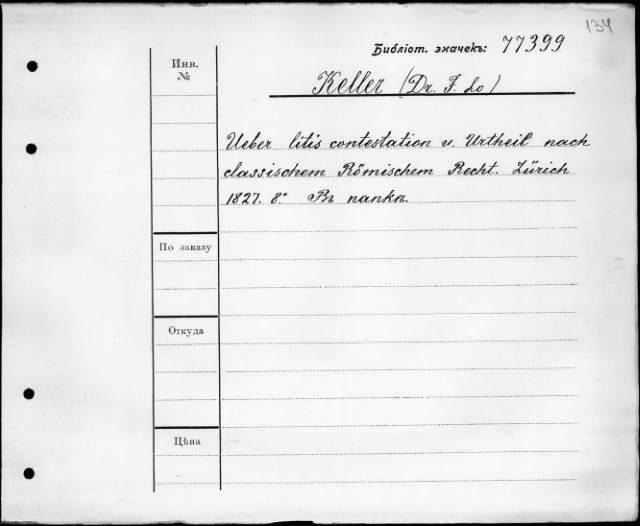 134
Библіот. значекъ: 77399
Инв.
№
Keller (Dr. F. Lo)
Ueber litis contestation u. Urtheil nach
classischem Römischem Recht. Zürich
1827. 8.° Въ папкѣ.
По заказу
Откуда
Цѣна